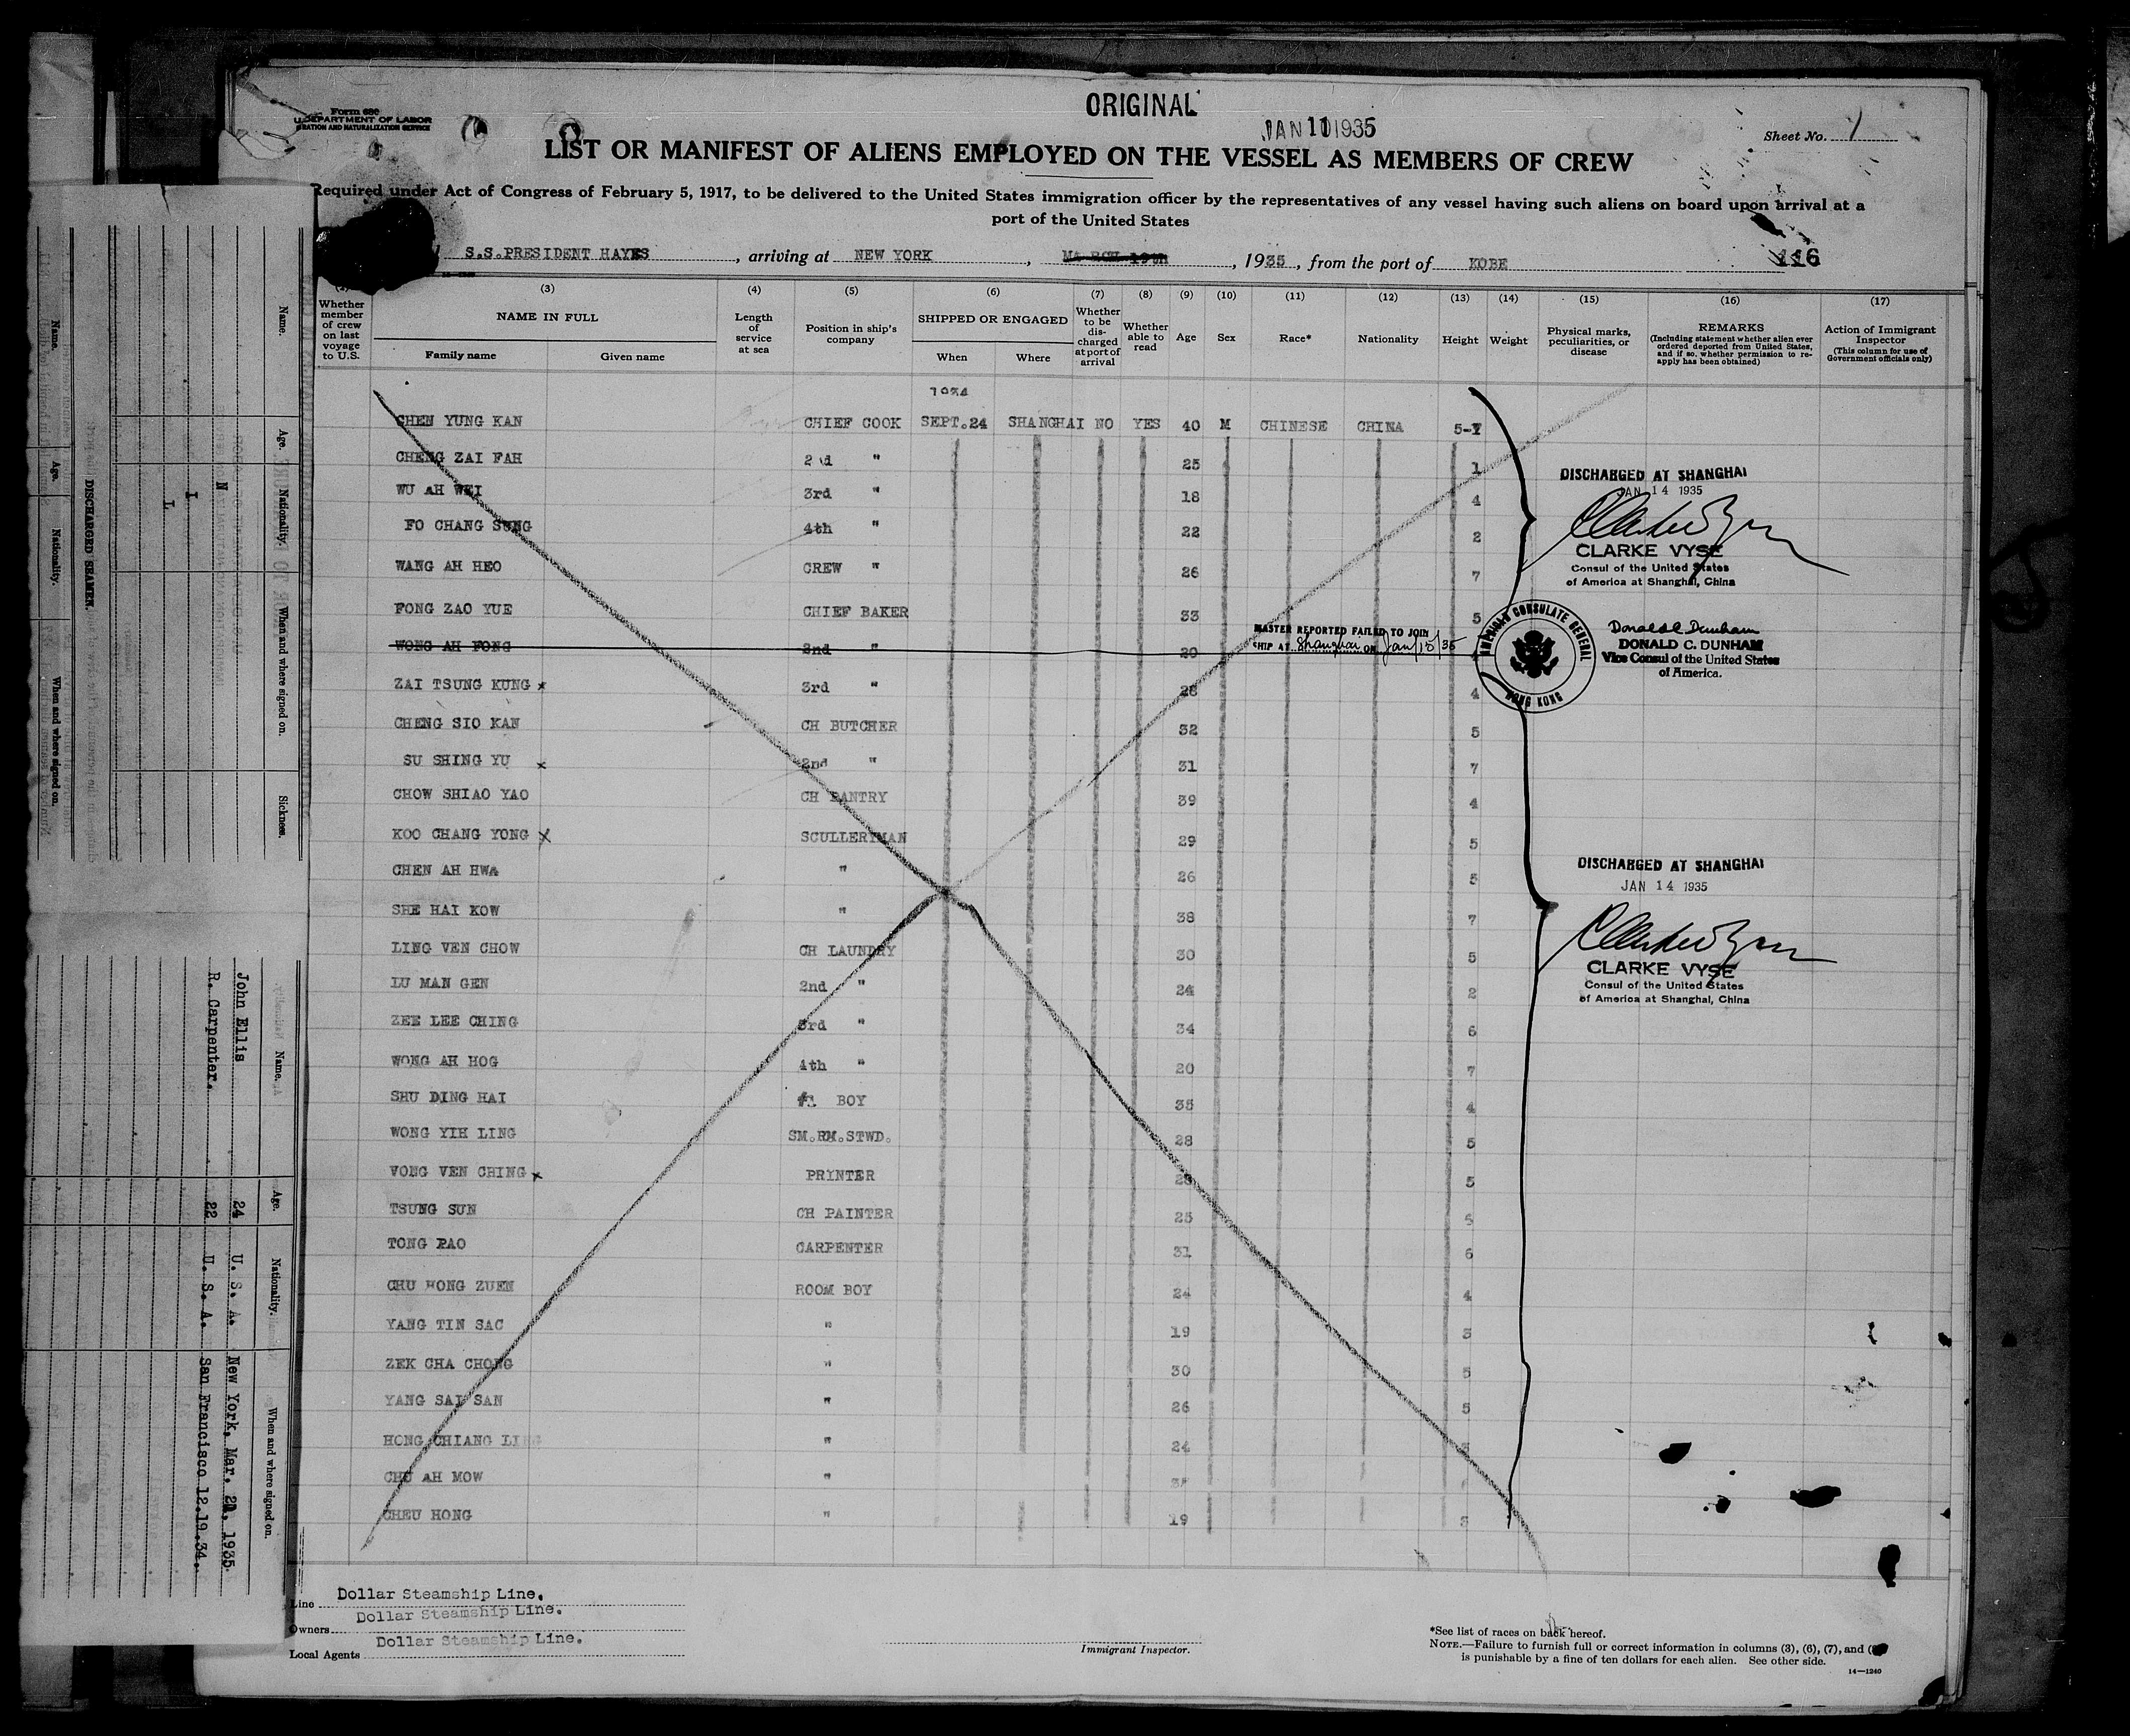 Form 686
U. S. DEPARTMENT OF LABOR
IMMIGRATION AND NATURALIZATION SERVICE
ORIGINAL
JAN 11 1935
Sheet No. 1
LIST OR MANIFEST OF ALIENS EMPLOYED ON THE VESSEL AS MEMBERS OF CREW
Required under Act of Congress of February 5, 1917, to be delivered to the United States immigration officer by the representatives of any vessel having such aliens on board upon arrival at a
port of the United States
S.S.PRESIDENT HAYES, arriving at NEW YORK, MARCH 19th, 1935, from the port of KOBE 116
(3) (4) (5) (6) (7) (8) (9) (10) (11) (12) (13) (14) (15) (16) (17)
Whether member of crew on last voyage to U.S.
NAME IN FULL
Family name Given name
Length of service at sea
Position in ship's company
SHIPPED OR ENGAGED
When Where
Whether to be discharged at port of arrival
Whether able to read
Age
Sex
Race*
Nationality
Height
Weight
Physical marks, peculiarities, or disease
REMARKS
(Including statement whether alien ever ordered deported from United States, and if so, whether permission to reapply has been obtained)
Action of Immigrant Inspector
(This column for use of Government officials only)
1934
CHEN YUNG KAN CHIEF COOK SEPT.24 SHANGHAI NO YES 40 M CHINESE CHINA 5-7
CHENG ZAI FAH 2nd " 25 1
WU AH WEI 3rd " 18 4
FO CHANG SUNG 4th " 22 2
WANG AH HEO CREW " 26 7
FONG ZAO YUE CHIEF BAKER 33 5
WONG AH FONG 2nd " 20
MASTER REPORTED FAILED TO JOIN
SHIP AT Shanghai ON Jan/15/35
ZAI TSUNG KUNG x 3rd " 28 4
CHENG SIO KAN CH BUTCHER 32 5
SU SHING YU x 2nd " 31 7
CHOW SHIAO YAO CH PANTRY 39 4
KOO CHANG YONG x SCULLERYMAN 29 5
CHEN AH HWA " 26 5
SHE HAI KOW " 38 7
LING VEN CHOW CH LAUNDRY 30 5
LU MAN GEN 2nd " 24 2
ZEE LEE CHING 3rd " 34 6
WONG AH HOG 4th " 20 7
SHU DING HAI #1 BOY 35 4
WONG YIH LING SM.RM.STWD. 28 5
VONG VEN CHING x PRINTER 28 5
TSUNG SUN CH PAINTER 25 5
TONG PAO CARPENTER 31 6
CHU HONG ZUEN ROOM BOY 24 4
YANG TIN SAC " 19 3
ZEK CHA CHONG " 30 5
YANG SAI SAN " 26 5
HONG CHIANG LING " 24
CHU AH MOW "
CHEU HONG " 19
DISCHARGED AT SHANGHAI
JAN 14 1935
Clarke Vyse
CLARKE VYSE
Consul of the United States
of America at Shanghai, China
AMERICAN CONSULATE GENERAL
HONG KONG
Donald C. Dunham
DONALD C. DUNHAM
Vice Consul of the United States
of America.
DISCHARGED AT SHANGHAI
JAN 14 1935
Clarke Vyse
CLARKE VYSE
Consul of the United States
of America at Shanghai, China
Line Dollar Steamship Line.
Owners Dollar Steamship Line.
Local Agents Dollar Steamship Line.
Immigrant Inspector.
*See list of races on back hereof.
NOTE.—Failure to furnish full or correct information in columns (3), (6), (7), and
is punishable by a fine of ten dollars for each alien. See other side.
14—1240
Name. Age. Nationality. When and where signed on. Sickness.
N I L L
DISCHARGED SEAMEN.
Name. Age. Nationality. When and where signed on.
Name. Age. Nationality. When and where signed on.
John Ellis 24 U. S. A. New York, Mar. 21, 1935
R. Carpenter. 22 U. S. A. San Francisco 12.19.34.